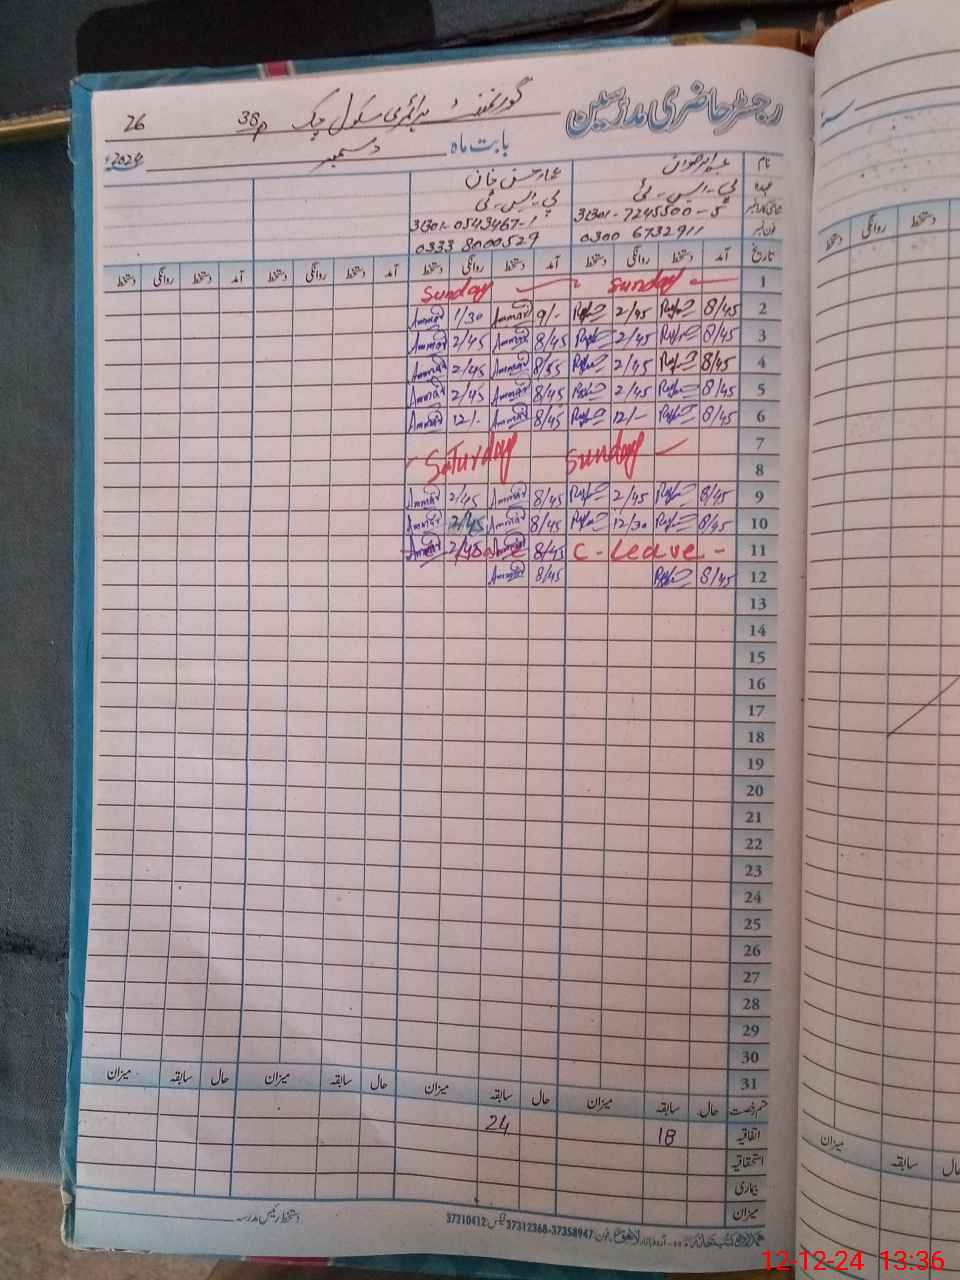 رجسٹر حاضری مدرسین گورنمنٹ پرائمری سکول چک 38P 26
بابت ماہ دسمبر 2024ء
نام عمار حسن خان
عہدہ پی۔ایس۔ٹی پی۔ایس۔ٹی
شناختی کارڈ نمبر 31301-7245500-5 31301-0543467-1
فون نمبر 0300 6732911 0333 8000529
تاریخ آمد دستخط روانگی دستخط آمد دستخط روانگی دستخط آمد دستخط روانگی دستخط آمد دستخط روانگی دستخط
1 Sunday Sunday
2 8/45 2/45 9/- Ammar 1/30 Ammar
3 8/45 2/45 8/45 Ammar 2/45 Ammar
4 8/45 2/45 8/55 Ammar 2/45 Ammar
5 8/45 2/45 8/45 Ammar 2/45 Ammar
6 8/45 12/- 8/45 Ammar 12/- Ammar
7 Saturday
8 Sunday
9 8/45 2/45 8/45 Ammar 2/45 Ammar
10 8/45 12/30 8/45 Ammar 2/45 Ammar
11 C-Leave- 8/45 Ammar 2/45 Ammar
12 8/45 8/45 Ammar
13
14
15
16
17
18
19
20
21
22
23
24
25
26
27
28
29
30
31
قسم رخصت حال سابقہ میزان حال سابقہ میزان حال سابقہ میزان حال سابقہ میزان
اتفاقیہ 18 24
استحقاقیہ
بیماری
میزان
دستخط رئیس مدرسہ
اردو بازار لاہور فون: 37358947-37312368 فیکس: 37210412
روانگی دستخط
میزان
سابقہ حال
12-12-24 13:36